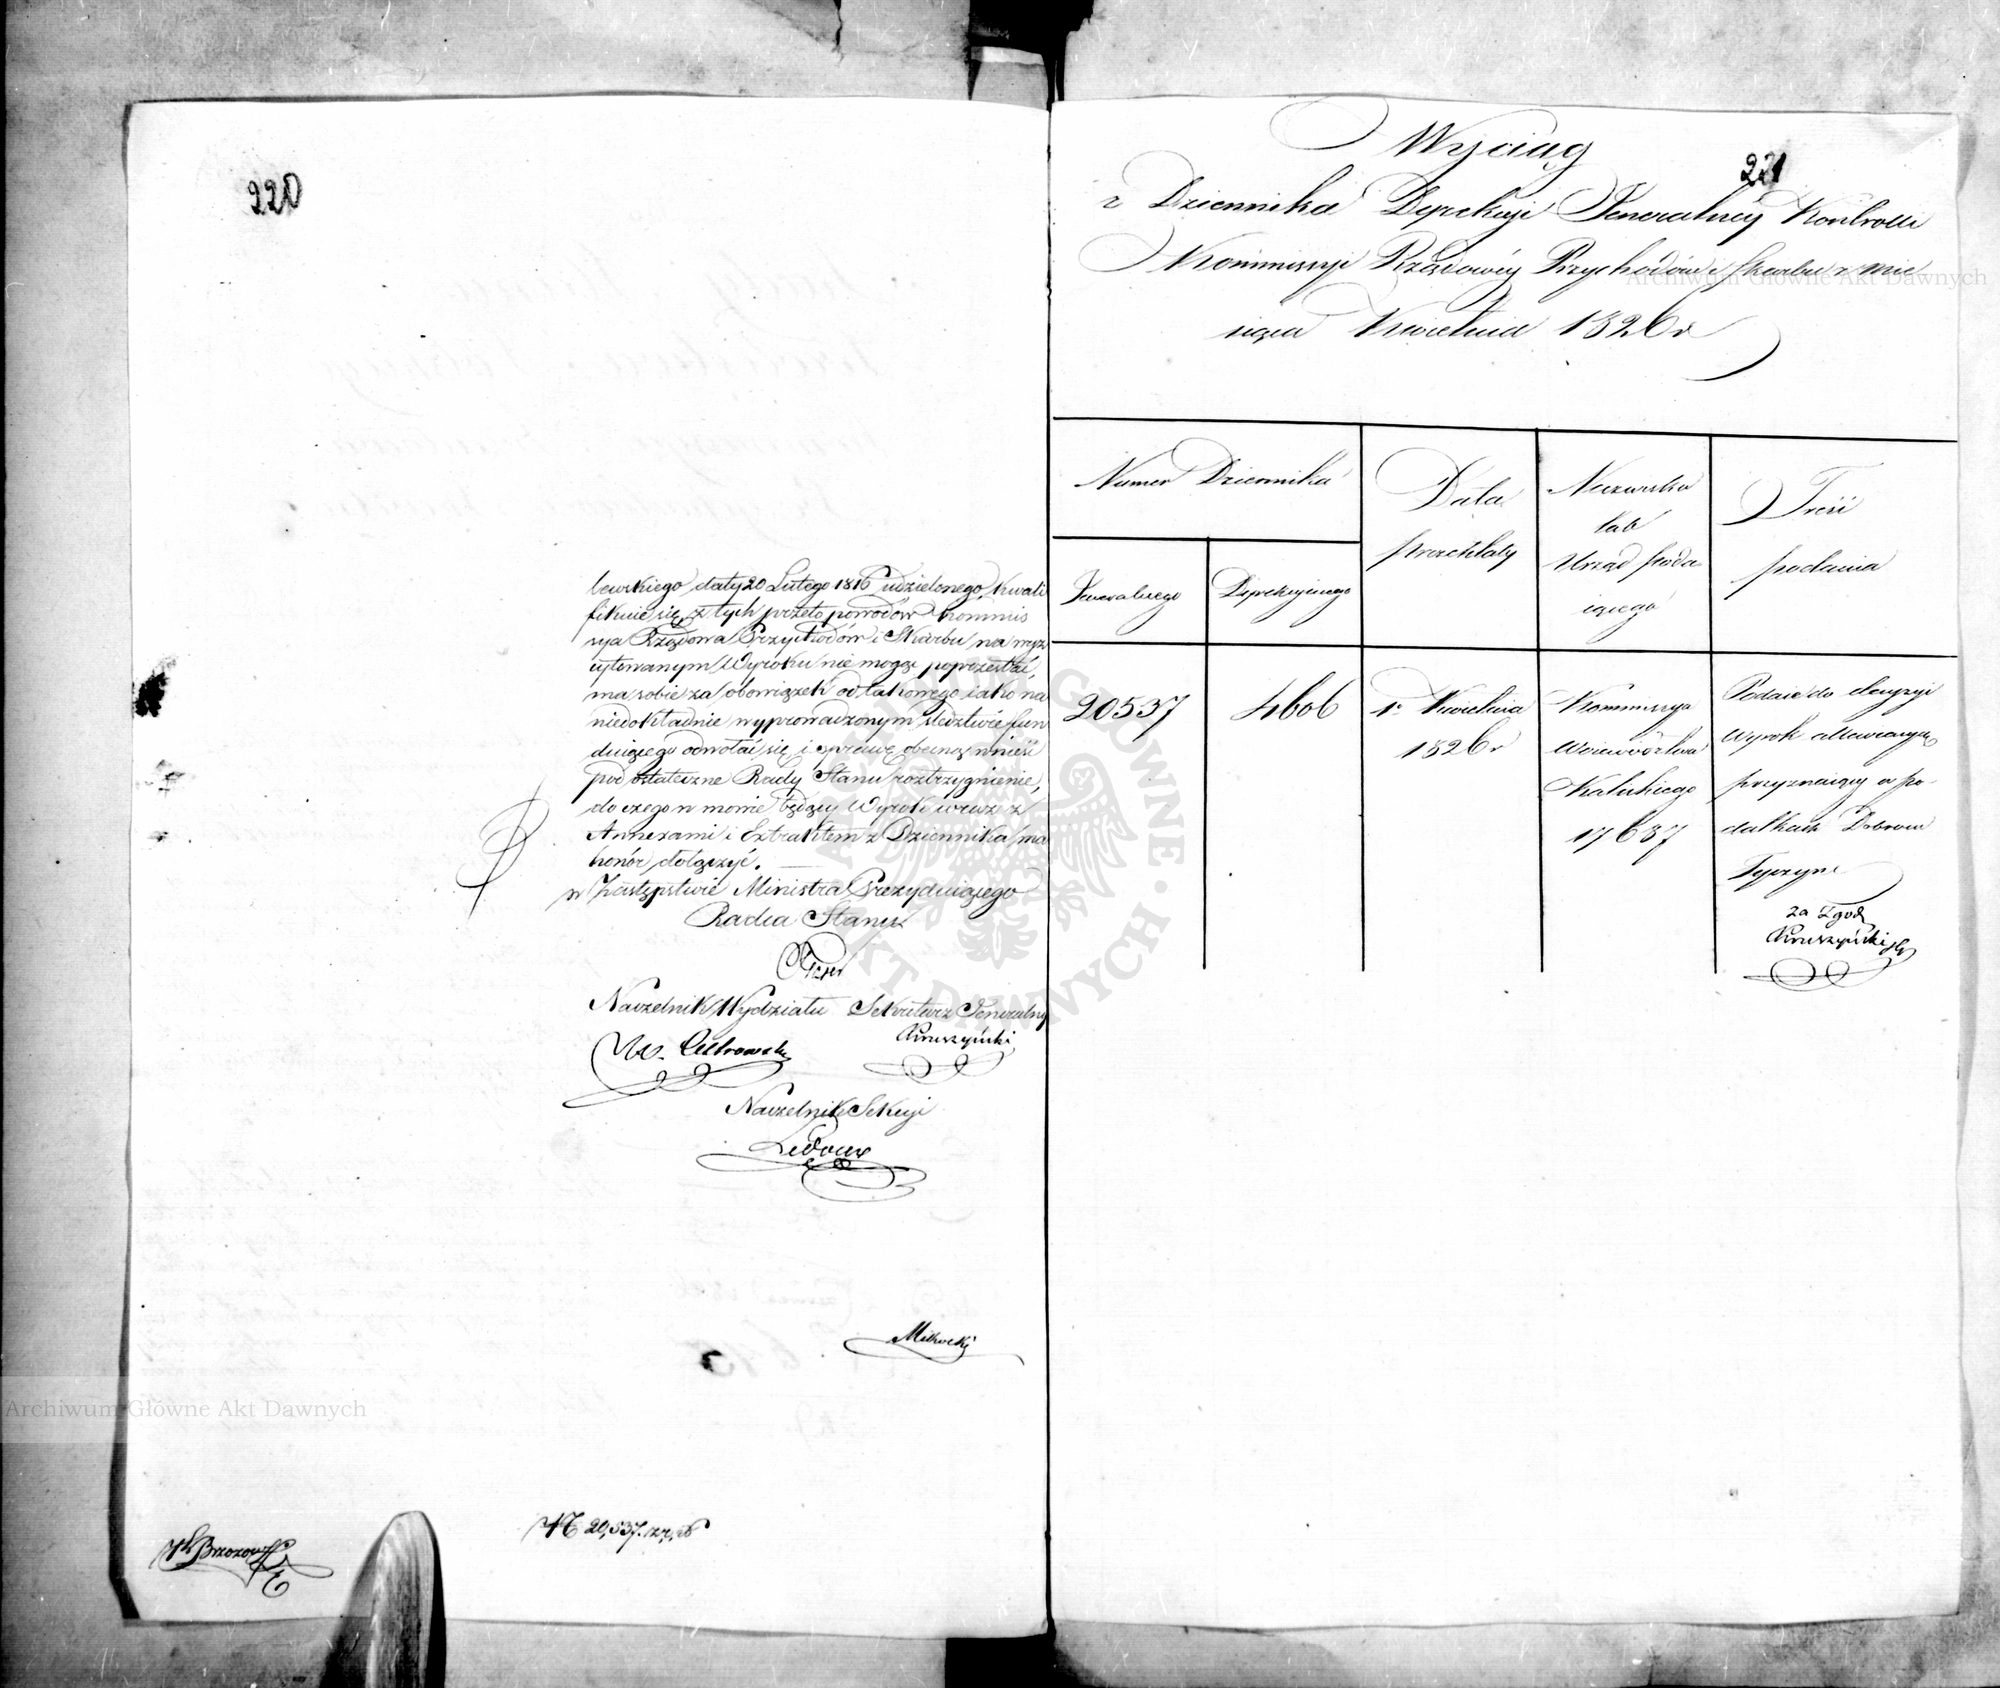 220
lewskiego daty 20 Lutego 1816 udzielonego, kwali
fikuie się, z tych przeto powodów Kommis
sya Rządowa Przychodów i Skarbu na wyż
cytowanym Wyroku nie mogąc poprzestać,
ma sobie za obowiązek od takowego iako na
niedokładnie wyprowadzonym śledztwie fun
duiącego odwołać się, i sprawę obecną wnieść
pod ostateczne Rady Stanu rostrzygnienie,
do czego w mowie będący Wyrok wraz z
Annexami i Extraktem z Dziennika ma
honor dołączyć.
w Zastępstwie Ministra Prezyduiącego
Radca Stanu
Naczelnik Wydziału Sekretarz Generalny
Kruszyński
Naczelnik Sekcyi
Ledoux
N 20,537.
Brzozowski
221
Wyciąg
z Dziennika Dyrekcyi Generalney Kontrolli
Kommissyi Rządowey Przychodów i Skarbu z mie
siąca Kwietnia 1826 r
Numer Dziennika
Generalnego
Dyrekcyinego
Data
prezentaty
Nazwisko
lub
Urząd poda
iącego
Treść
podania
20537
4606
1º Kwietnia
1826 r
Kommissya
Woiewództwa
Kaliskiego
17637
Podaie do decyzyi
wyrok
przyznaiący w po-
datkach Dobrom
Tyczyn
za Zgod
Kruszyński
Archiwum Główne Akt Dawnych
Archiwum Główne Akt Dawnych
ARCHIWUM GŁÓWNE AKT DAWNYCH